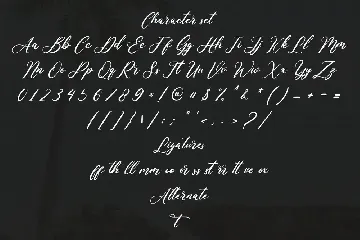 Character set
Aa Bb Cc Dd Ee Ff Gg Hh Ii Jj Kk Ll Mm
Nn Oo Pp Qq Rr Ss Tt Uu Vv Ww Xx Yy Zz
0 1 2 3 4 5 6 7 8 9 * ! @ # $ % ^ & * ( ) _ + - =
{ } [ ] \ | : ; " ' < , . > ? /
Ligatures
ff th ll mm oo rr ss st tt ve ox
Alternate
t